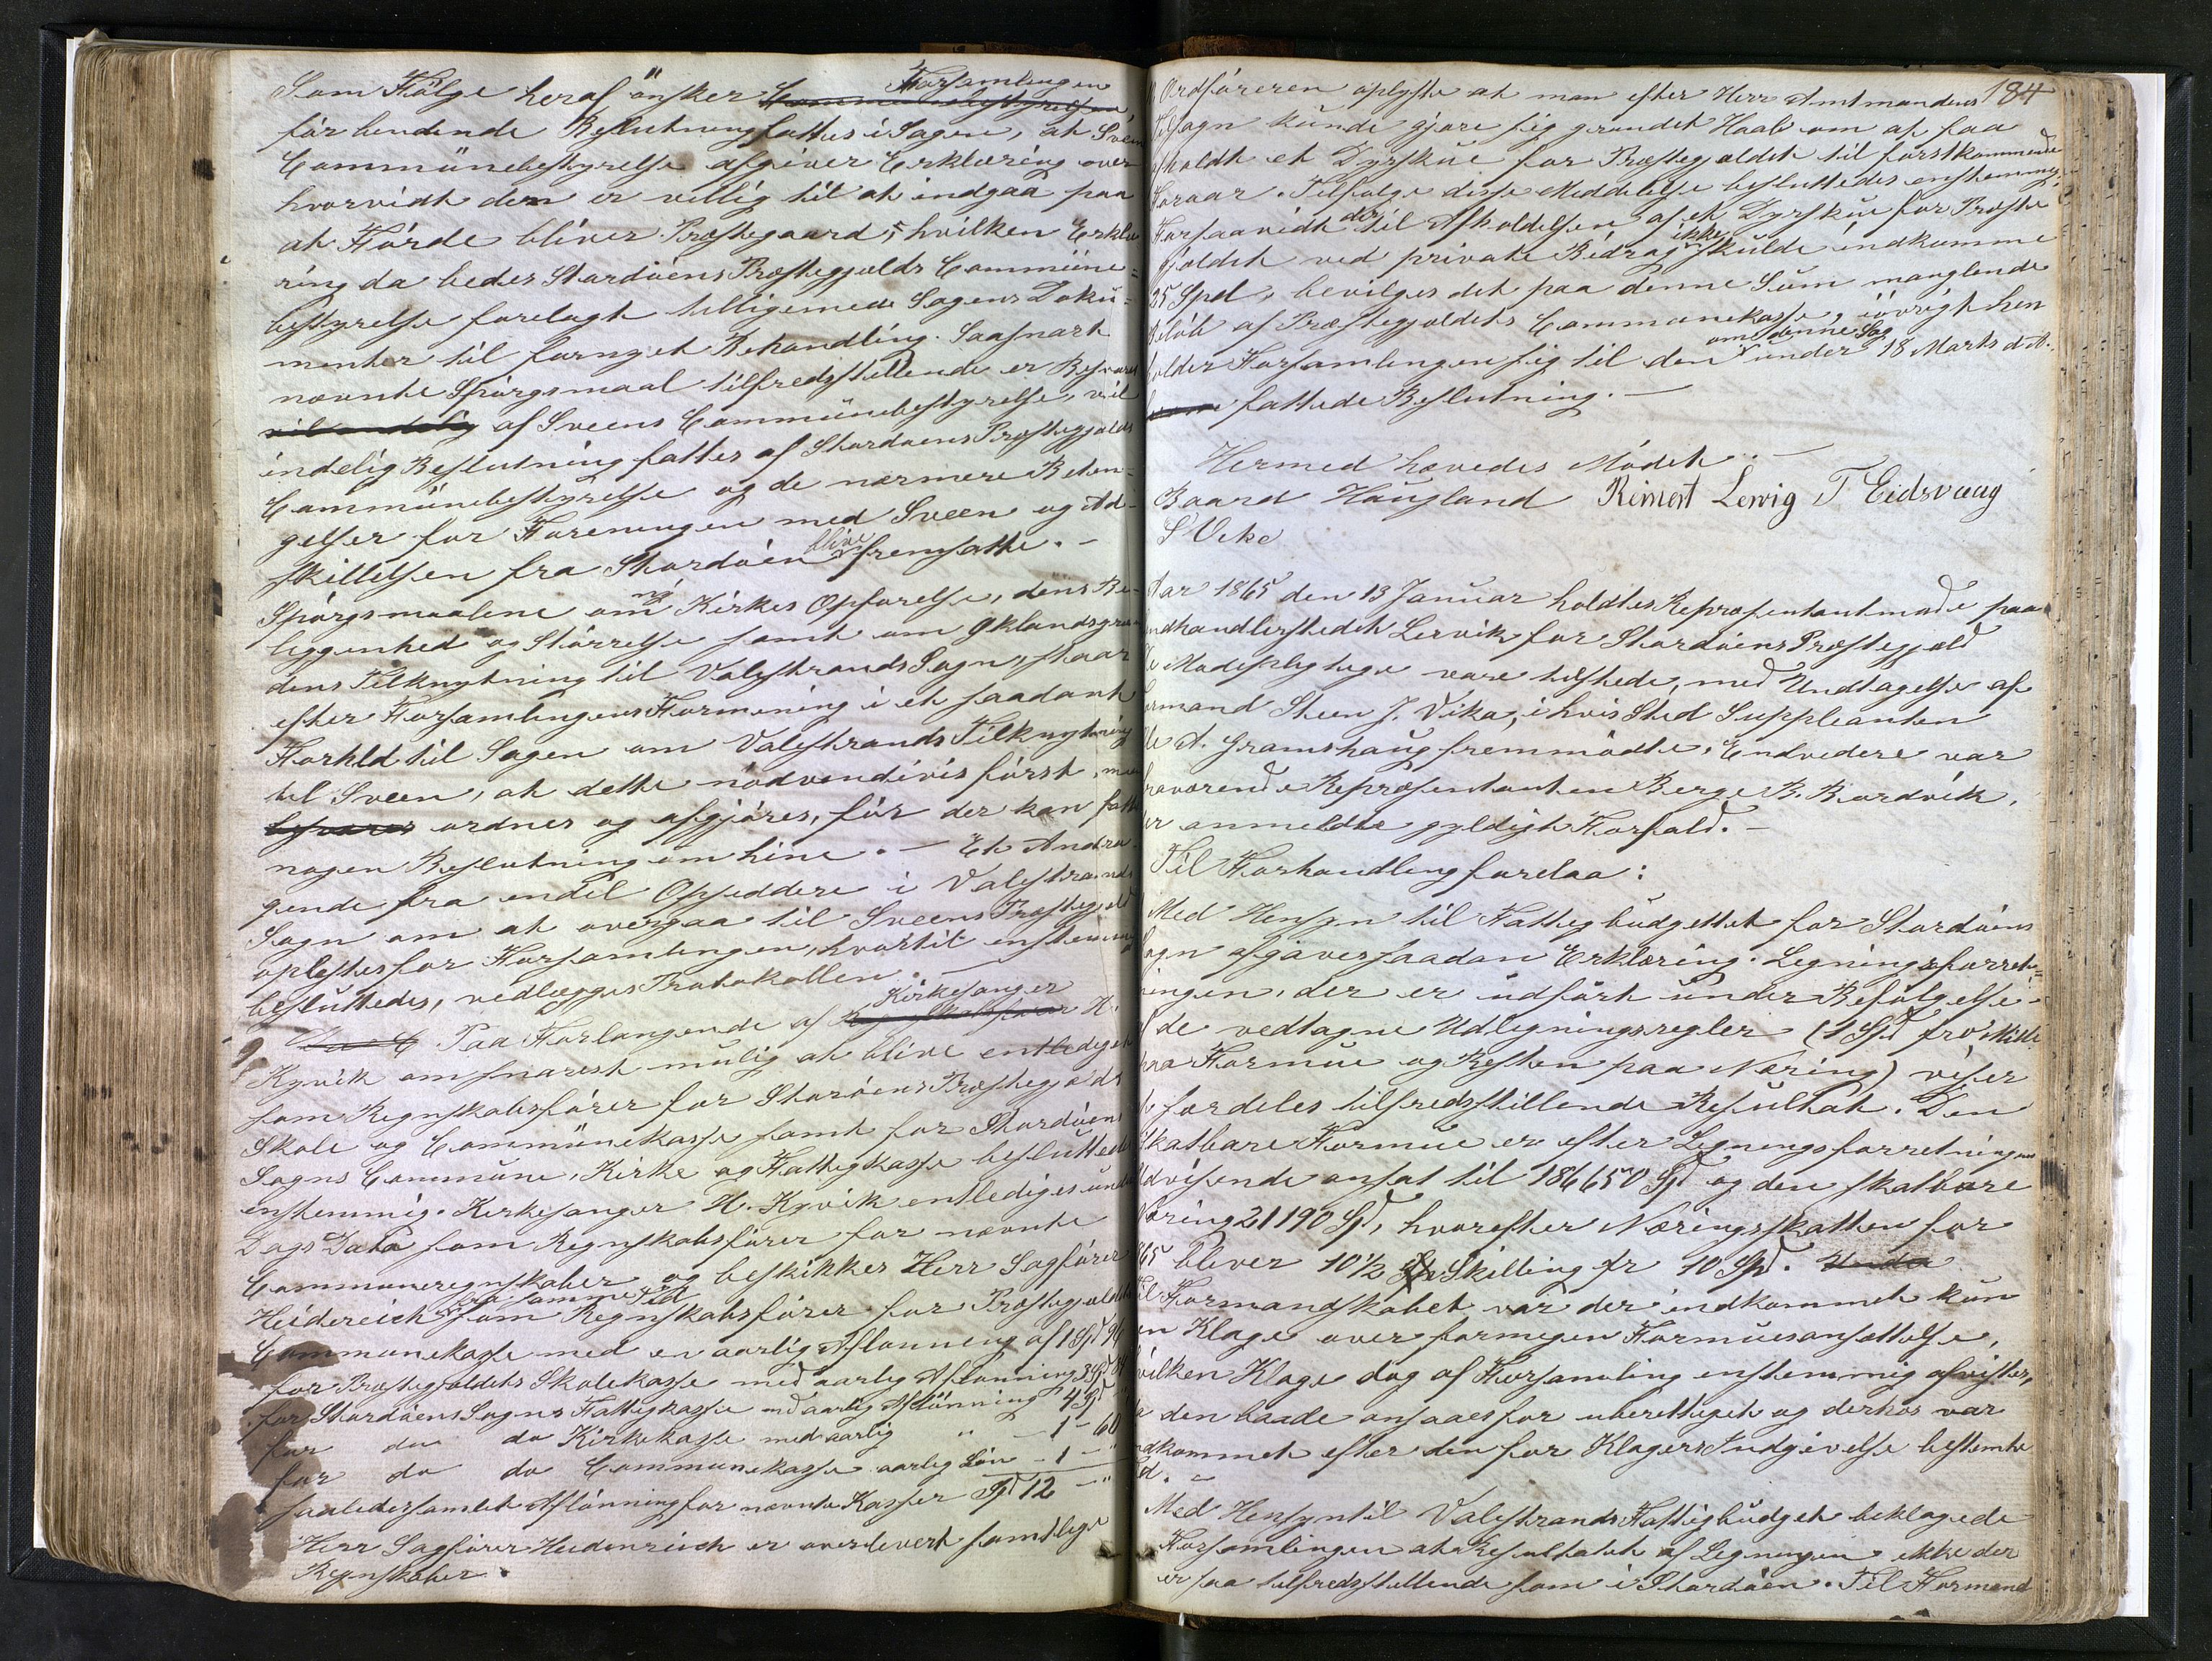 Som Følge heraf ønsker Communebestyrelsen, Forsamlingen
før bindende Beslutning fattes i Sagen, at Sveen
Communebestyrelse afgiver Erklæring over
hvorvidt den er villig til at indgaa paa
at Førde bliver Præstegaard; hvilken Erklæ
ring da bedes Stordøens Præstegjælds Commune=
bestyrelse forelagt tilligemed Sagens Doku=
menter til fornyet Behandling. Saasnart
nævnte Spørgsmaal tilfredsstillende er Besvaret
vil endelig af Sveens Communebestyrelse, vil
endelig Beslutning fattes af Stordøens Præstegjælds
Communebestyrelse og de nærmere Betin=
gelser for Foreningen med Sveen og Ad-
skillelsen fra Stordøen blive fremsatte. -
Spørgsmaalene om ny Kirkes Opførelse, dens Be-
liggenhed og Størrelse samt om Øklandsgren
dens Tilknytning til Valestrands Sogn, staar
efter Forsamlingens Formening i et saadant
Forhld til Sagen om Valestrands Tilknytning
til Sveen, at dette nødvendivis først, maa
besvares ordnes og afgjøres, før der kan fattes
nogen Beslutning om hine. - Et Andra-
gende fra endel Opsiddere i Valestrands
Sogn om at overgaa til Sveens Præstegjeld
oplæstes for Forsamlingen, hvortil enstemmig
besluttedes, vedlægges Protokollen. -
9 Paa Forlangende af Regnskabsfører Kirkesanger H.
Kyvik om snarest mulig at blive entlediget
som Regnskabsfører for Storøens Præstegjælds
Skole og Communekasse samt for Stordøens
Sogns Commune, Kirke og Fattigkasse besluttedes
enstemmig. Kirkesanger H. Kyvik entlediges under
Dags Dato som Regnskabsfører for nævnte
Communeregnskaber og beskikkes Herr Sagfører
Heidereich fra samme Tid som Regnskabsfører for Præstegjældets
Communekasse med en aarlig Aflønning af 1 Spd 96
for Præstegjældets Skolekasse med aarlig Aflønning 3 Spd 84
for Stordøens Sogns Fattigkasse md aarlig Aflønning 4 Spd "
for do do Kirkekasse med aarlig " - 1 - 60
for do do Communekasse aarlig Løn - 1 - "
saaledes samlet Aflønning for nævnte Kasser Spd 12 - "
Herr Sagfører Heidenreich er overlevert samtlige
Regnskaber.
184
Ordføreren oplyste at man efter Herr Amtmandens
Tilsagn kunde gjøre sig grundet Haab om at faa
afholdt et Dyrskue for Præstegjældet til førstkommende
Foraar. Tilfølge disse Meddelelse besluttedes enstemmig:
Forsaavidt der til Afholdelsen af et Dyrskue for Præste
gjældet ved private Bidrag ikke skulde indkomme
25 Spd, bevilges det paa denne Sum manglende
Beløb af Præstegjældets Communekasse, iøvrigt hen
holder Forsamlingen sig til den om denne Sag under 18 Marts d.A.
fattede Beslutning. -
Hermed hævedes Mødet. -
Baard Haugland Rimert Lervig T Eidsvaag
S Veke
Aar 1865 den 13 Januar holdtes Repræsentantmøde paa
Landhandlerstedet Lervik for Stordøens Præstegjeld
De Mødepligtige vare tilstede, med Undtagelse af
Formand Steen J. Vika, i hvis Sted Suppleanten
Ole A. Gramshaug fremmødte. Endvidere var
fraværende Repræsentanten Berge B. Bordvik,
der anmeldte gyldigt Forfald. -
Til Forhandling forelaa:
Med Hensyn til Fattigbudgettet for Stordøens
Sogn afgaves saadan Erklæring. Legningsforret=
ningen, der er udført under Befølgelse
af de vedtagne Udligningsregler (1 Spd pro Mille
paa Formue og Resten paa Næring) viser
et fordeles tilfredsstillende Resultat. Den
Skatbare Formue er efter Legningsforretningens
Udvisende ansat til 186650 Spd og den skatbare
Næring 21190 Spd, hvorefter Næringsskatten for
1865 bliver 10½ Skilling pr 10 Spd. Under
Til Formandskabet var der indkommet kun
en Klage over formegen Formuesansættelse,
hvilken Klage dog af Forsamling enstemmig afvistes,
da den baade ansaaes for uberettiget og derhos var
indkommet efter den for Klagers Indgivelse bestemte
Tid. -
Med Hensyn til Valestrands Fattigbudget beklagede
Forsamlingen at Resultatet af Legningen ikke der
er saa tilfredsstillende som i Stordøen. Til Formand